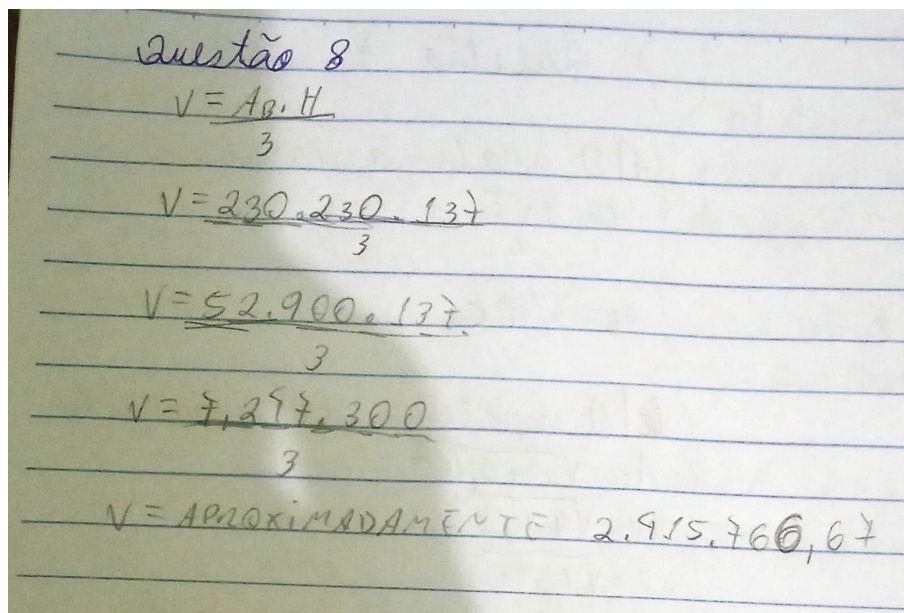 Questão 8
V = AB . H
3
V = 230 . 230 . 137
3
V = 52.900 . 137
3
V = 7,247.300
3
V = APROXIMADAMENTE 2.415.766,67